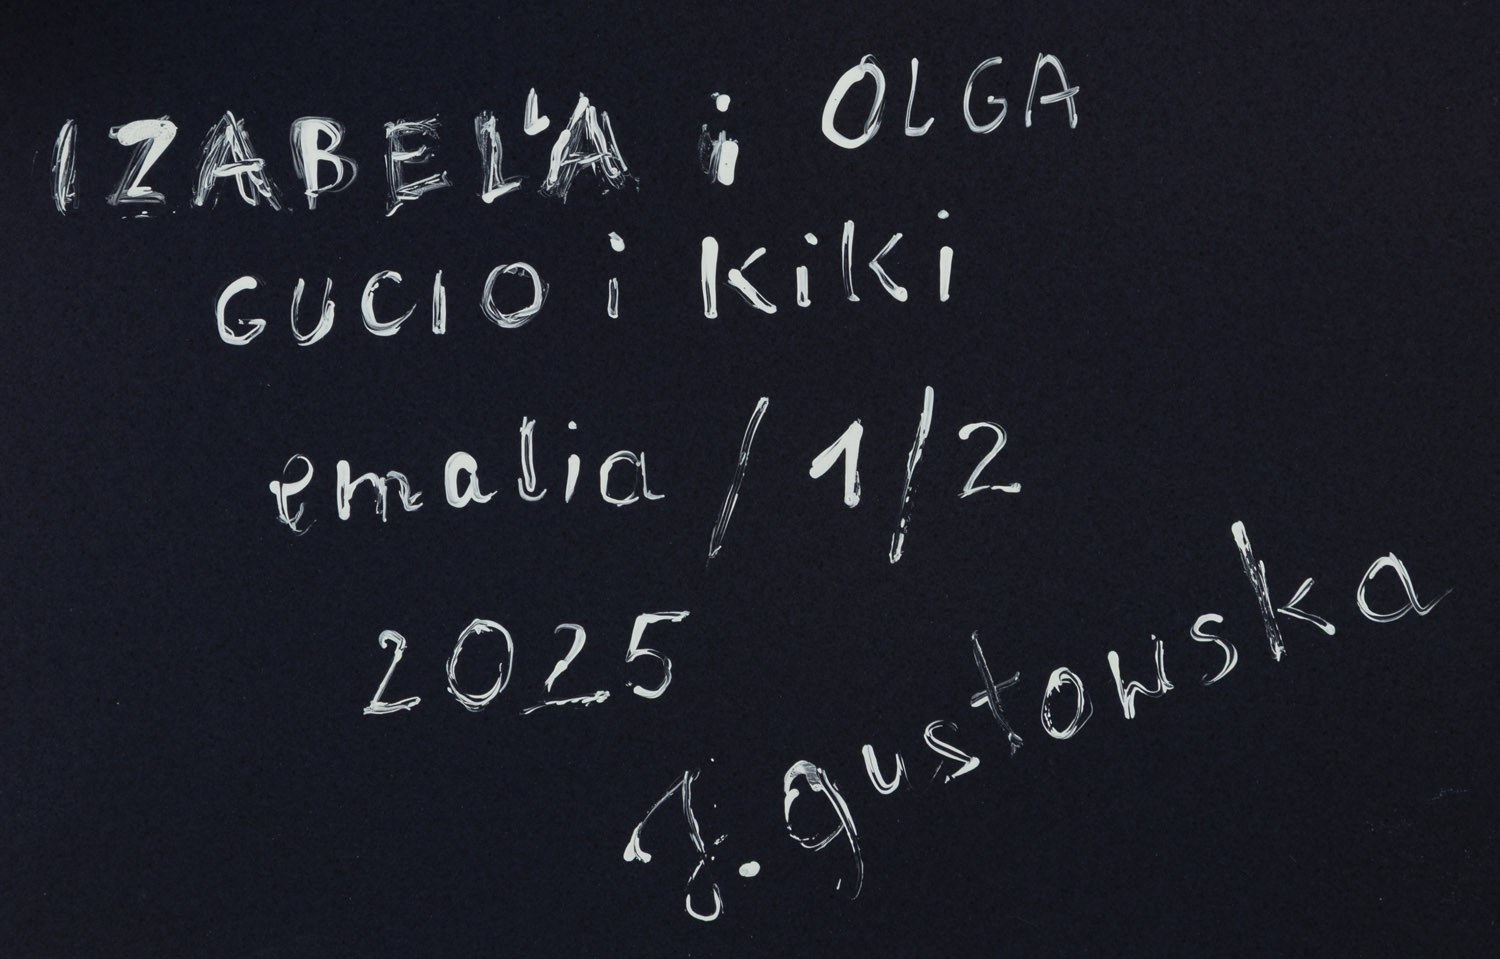 IZABELLA i OLGA
GUCIO i KiKi
emalia / 1/2
2025
J. gustowska